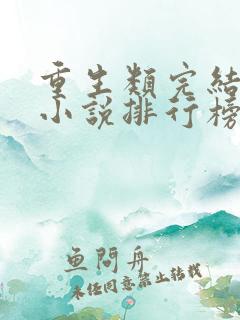 重生類完結
小說排行榜
魚問舟
未经同意禁止转载